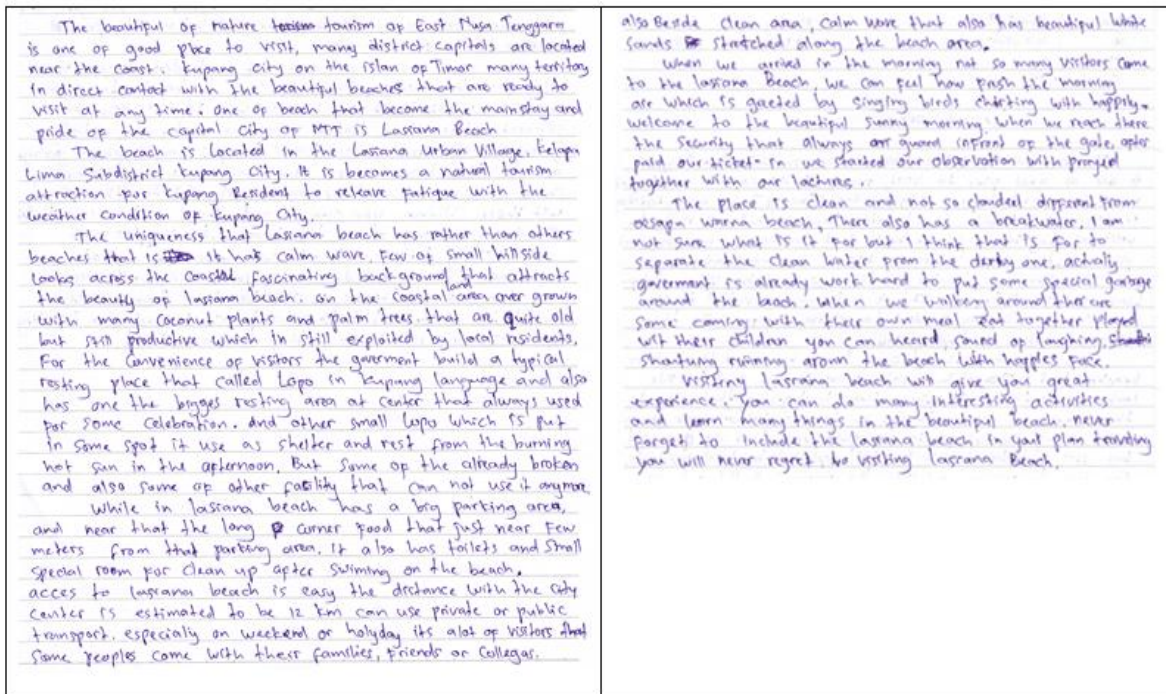 The beautiful of nature tourism of East Nusa Tenggara
is one of good place to visit, many district capitals are located
near the coast. Kupang city on the islan of Timor many territory
in direct contact with the beautiful beaches that are ready to
visit at any time. One of beach that become the mainstay and
pride of the capital city of NTT is Lasiana Beach
The beach is located in the Lasiana Urban Village, Kelapa
Lima Subdistrict Kupang City. It is becomes a natural tourism
attraction for Kupang Resident to releave Fatigue with the
weather condition of Kupang City.
The uniqueness that Lasiana beach has rather than others
beaches that is it has calm wave, Few of small hillside
Looks across the coastal fascinating background that attracts
the beauty of lasiana beach. on the coastal land area over grown
with many Coconut plants and palm trees that are quite old
but still productive which in still exploited by local residents.
For the convenience of visitors the goverment build a typical
resting place that called Lopo in Kupang language and also
has one the bigges resting area at center that always used
for some celebration. And other small Lopo which is put
in some spot it use as shelter and rest from the burning
hot sun in the afternoon, But some of the already broken
and also some of other facility that can not use it anymore
While in lasiana beach has a big parking area,
and near that the long corner food that just near few
meters from that parking area, It also has toilets and small
special room for clean up after swiming on the beach.
acces to lasiana beach is easy the distance with the city
center is estimated to be 12 km can use private or public
transport. especialiy on weekend or holyday its alot of visitors that
some peoples come with their families, Friends or Collegas.
also Beside clean area, calm wave that also has beautiful white
sands stretched along the beach area.
When we arrived in the morning not so many visitors come
to the Lasiana Beach, we can feel how fresh the morning
air which is greeted by singing birds with happily.
welcome to the beautiful sunny morning. When we reach there
the security that always guard infront of the gate, after
paid our ticket in we started our observation with prayed
together with our lectures.
The place is clean and not so different from
oesapa warna beach. There also has a breakwater, I am
not sure what is it for but I think that is for to
separate the clean water from the derty one, actualy
goverment is already work hard to put some special garbage
around the beach. When we walking around ther are
some coming with their own meal eat together played
wit their children you can heard sound of laughing,
shantung running aroun the beach with happies Face.
Visiting lasiana beach will give you great
experience. You can do many interesting activities
and learn many things in the beautiful beach. never
forget to include the lasiana beach in your plan traveling
you will never regret to visiting lasiana Beach.